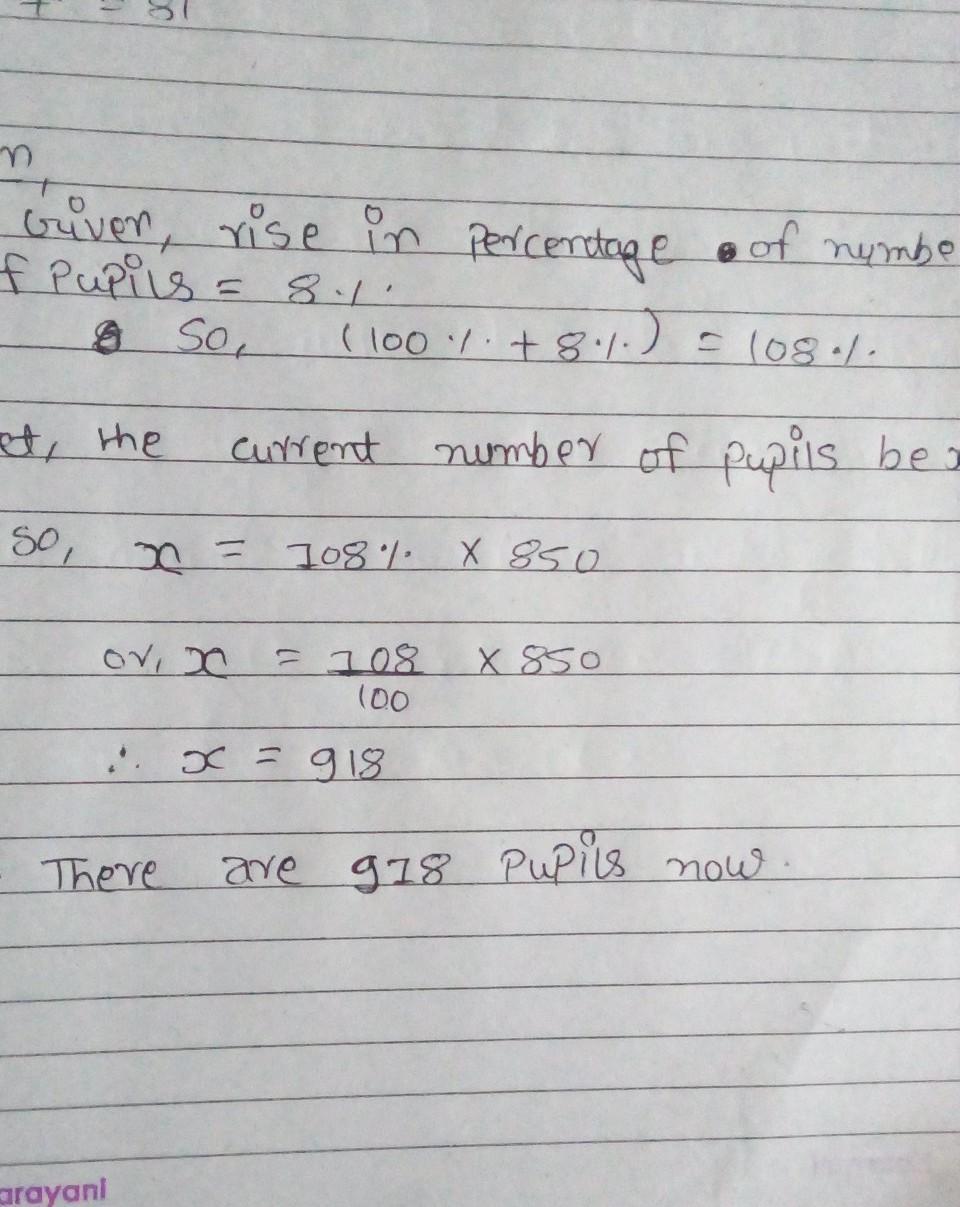 = 81
n,
Given, rise in Percentage of numbe
f Pupils = 8%.
So, (100% + 8%) = 108%.
et, the current number of pupils be x
so, x = 108% × 850
or, x = 108/100 × 850
∴ x = 918
There are 918 Pupils now.
arayani